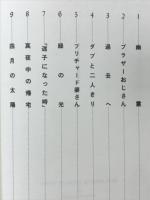 1 幽霊
2 ブラザーおじさん
3 過去へ
4 ダブと二人きり
5 プリチャード婆さん
6 緑の光
7 『迷子になった時』
8 真夜中の帰宅
9 臨月の太陽